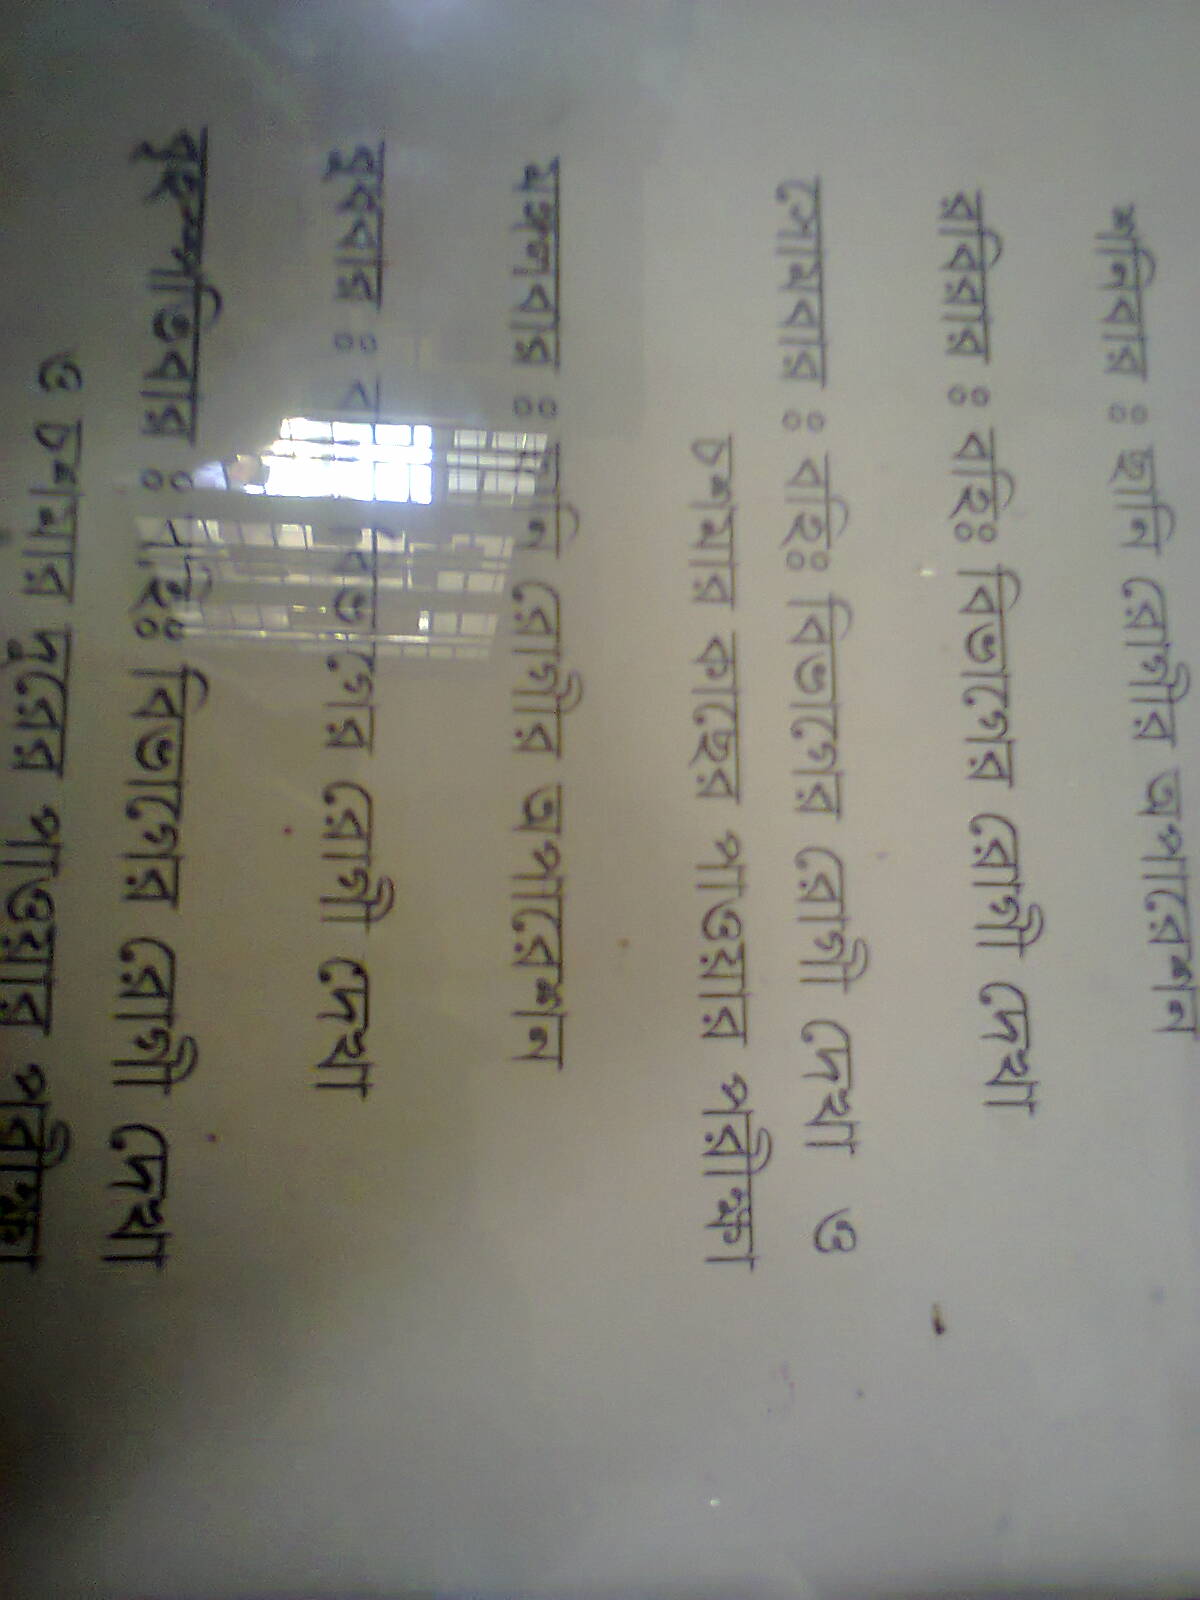 শনিবার ঃ ছানি রোগীর অপারেশন
রবিবার ঃ বহিঃ বিভাগের রোগী দেখা
সোমবার ঃ বহিঃ বিভাগের রোগী দেখা ও
চশমার কাছের পাওয়ার পরীক্ষা
মঙ্গলবার ঃ ছানি রোগীর অপারেশন
বুধবার ঃ বিভাগের রোগী দেখা
বৃহস্পতিবার ঃ বহিঃ বিভাগের রোগী দেখা
ও চশমার দুরের পাওয়ার পরীক্ষা